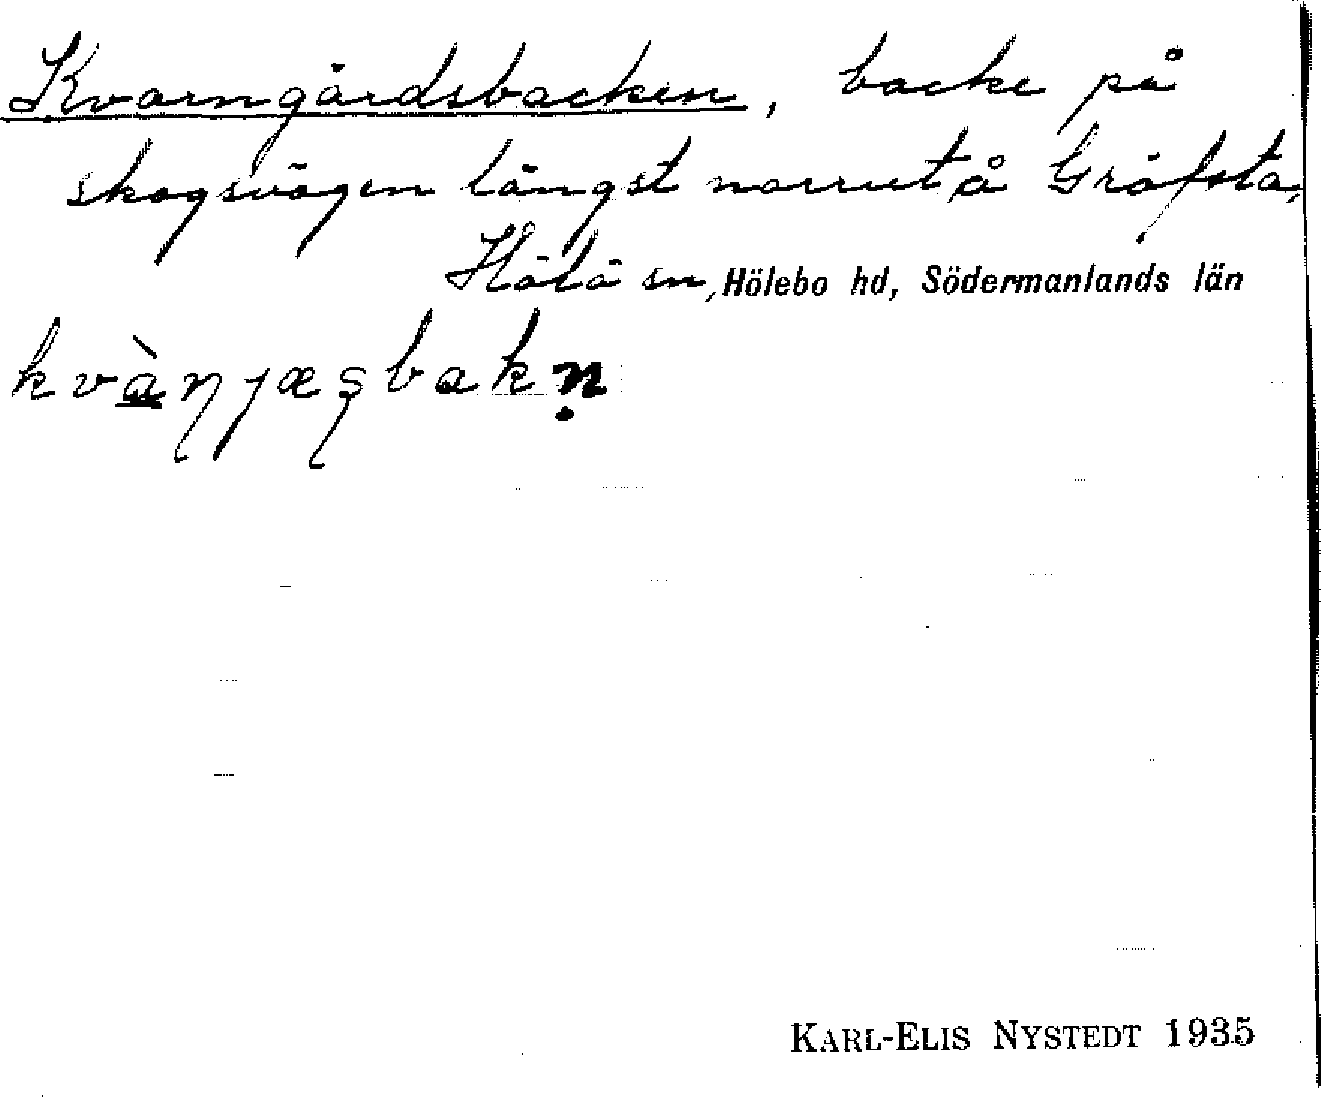 Kvarngärdsbacken, backe på
skogsvägen längst norrut å Gräfsta,
Hölö sn, Hölebo hd, Södermanlands län
kvàɳjæʂbakṇ
KARL-ELIS NYSTEDT 1935